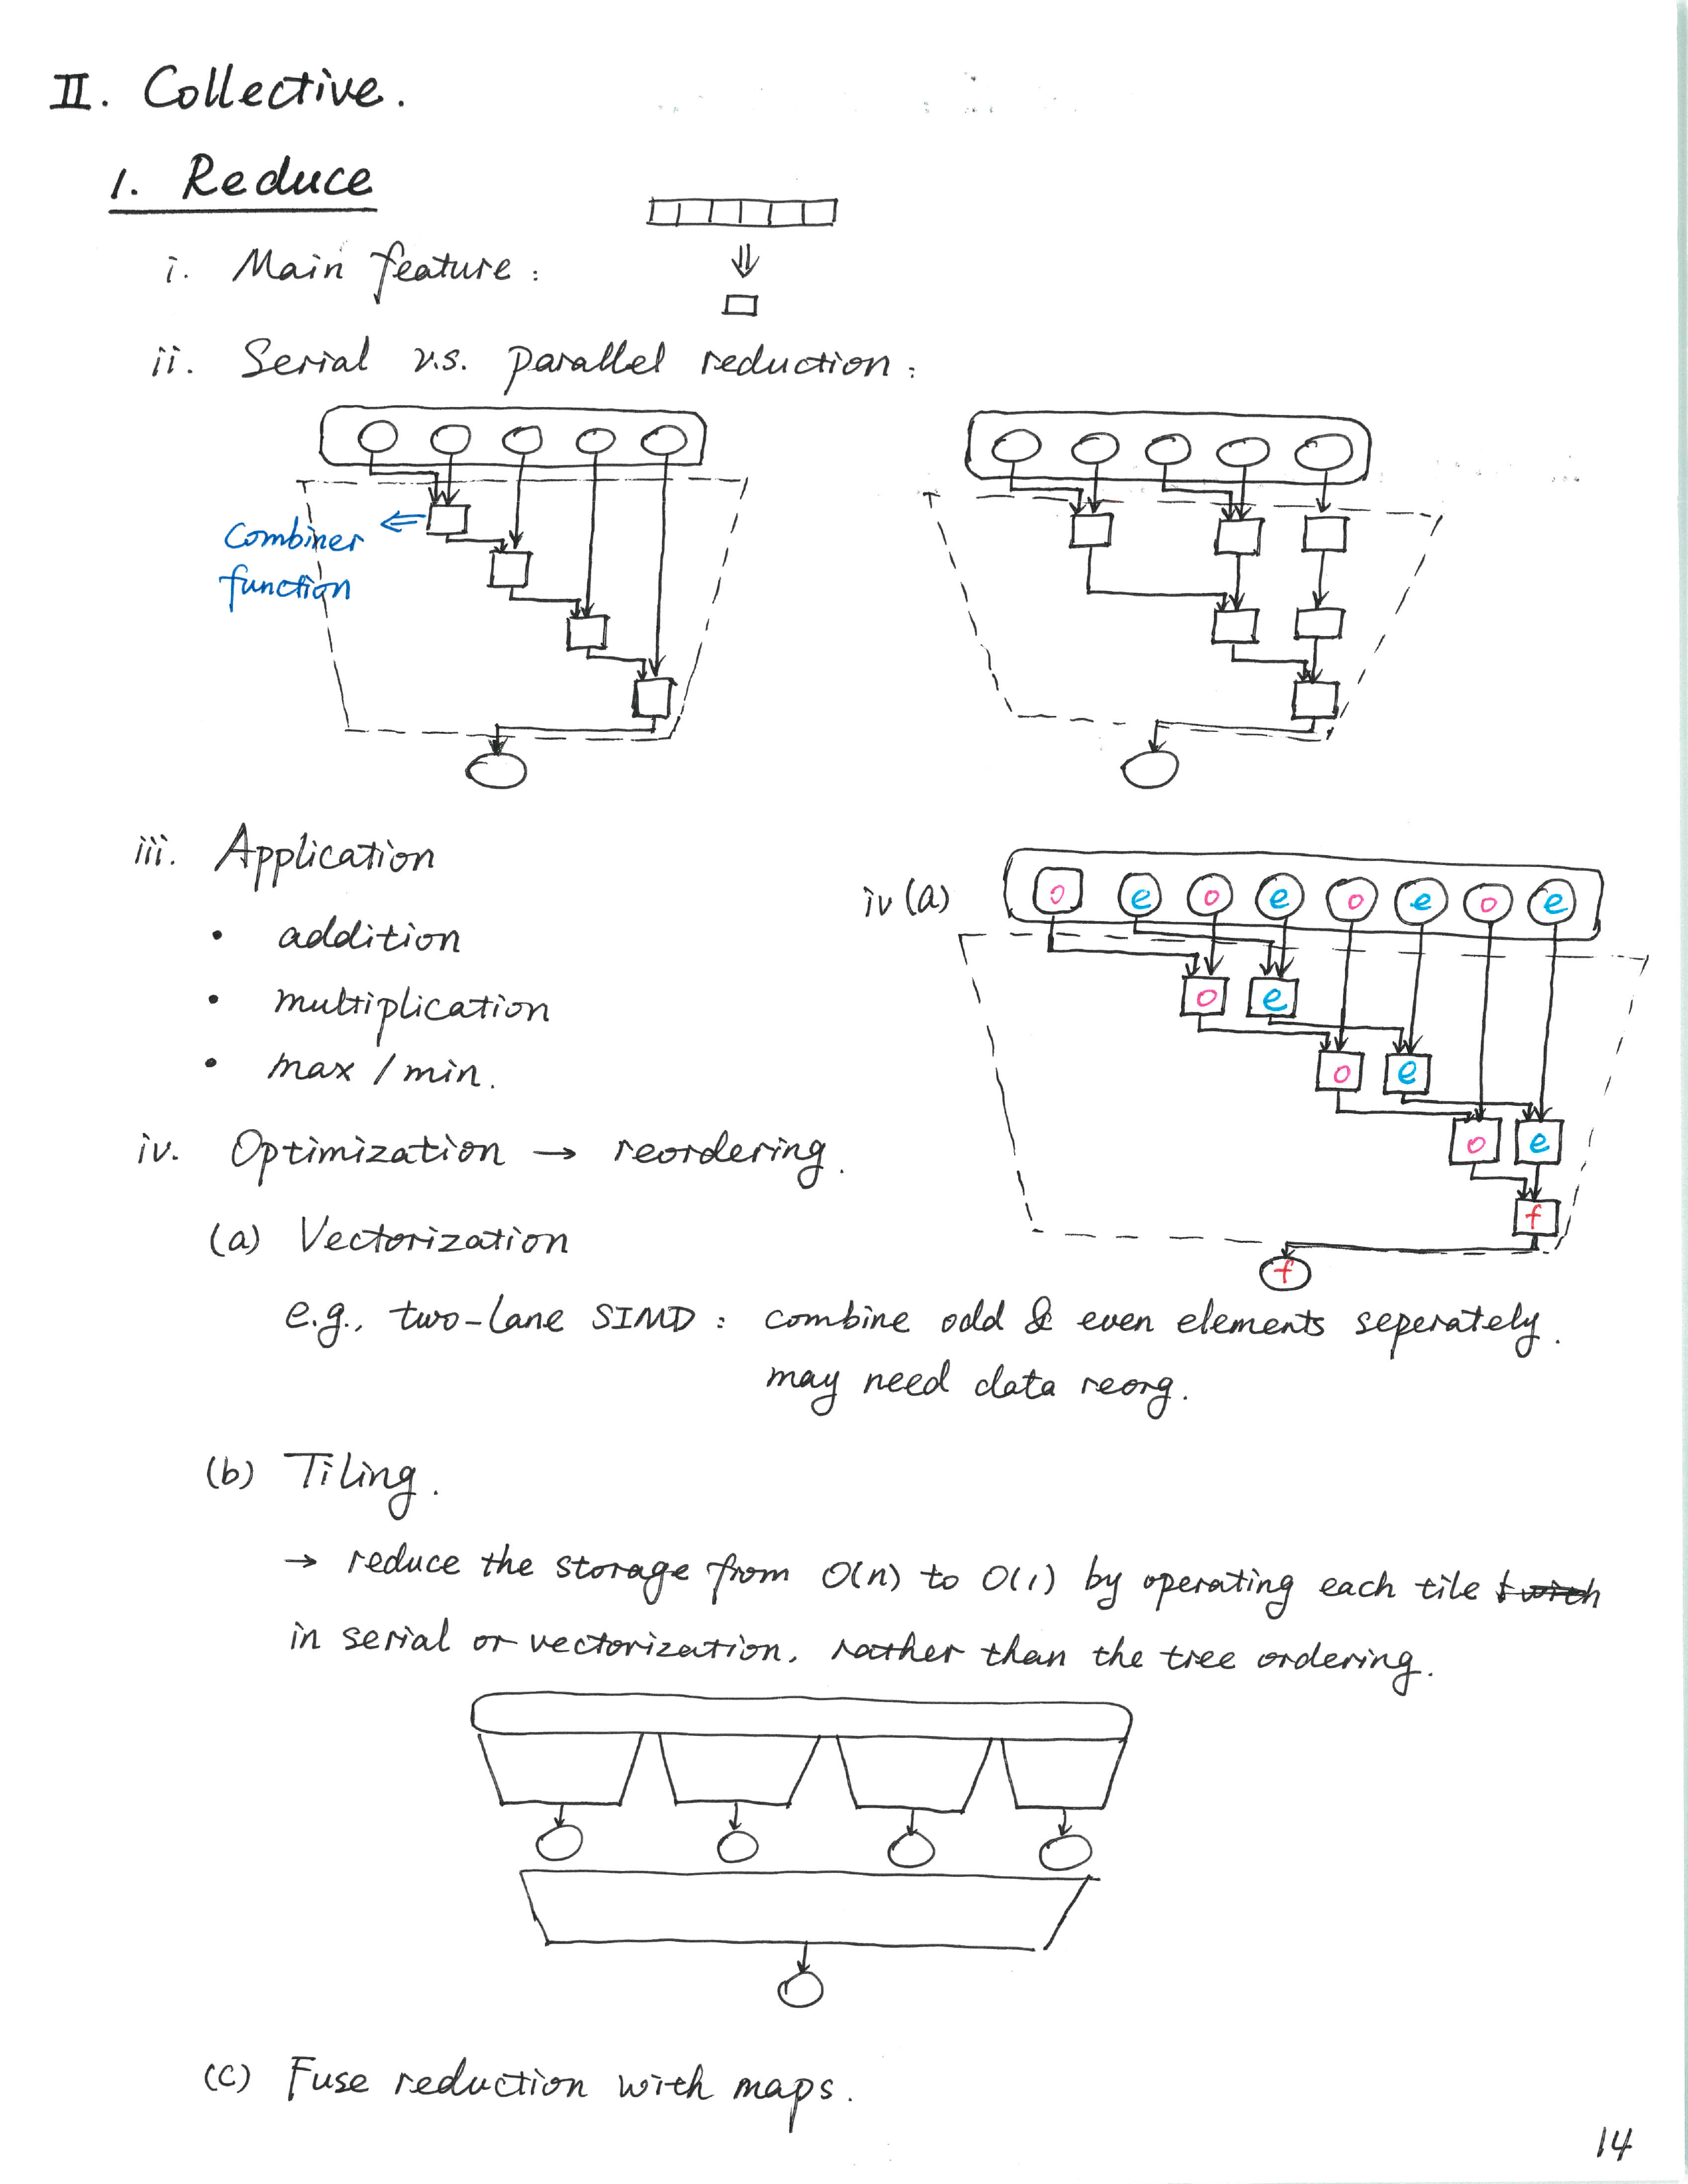 II. Collective.
1. Reduce
i. Main feature:
ii. Serial v.s. parallel reduction:
Combiner
function
iii. Application
• addition
• multiplication
• max / min.
iv (a)
o e o e o e o e
o e
o e
o e
f
f
iv. Optimization → reordering.
(a) Vectorization
e.g., two-lane SIMD: combine odd & even elements seperately.
may need data reorg.
(b) Tiling.
→ reduce the storage from O(n) to O(1) by operating each tile
in serial or vectorization, rather than the tree ordering.
(c) Fuse reduction with maps.
14